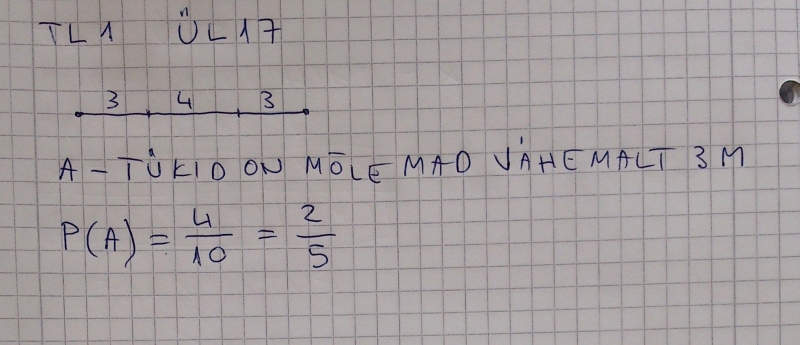 TL1 ÜL17
3 4 3
A – TÜKID ON MÕLEMAD VÄHEMALT 3 M
P(A) = 4/10 = 2/5